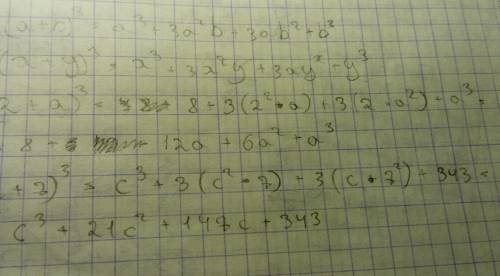 (a+b)³ = a³ + 3a²b + 3ab² + b³
(x+y)³ = x³ + 3x²y + 3xy² + y³
2 + a)³ = 8 + 3(2²·a) + 3(2·a²) + a³ =
8 + 12a + 6a² + a³
+ 7)³ = c³ + 3(c²·7) + 3(c·7²) + 343 =
c³ + 21c² + 147c + 343